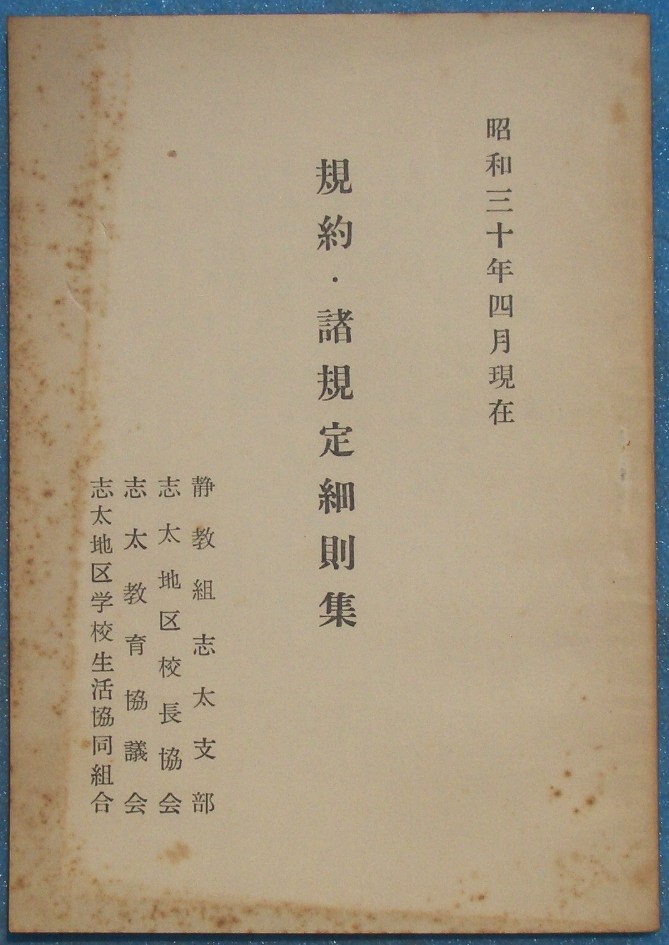 昭和三十年四月現在
規約・諸規定細則集
静教組志太支部
志太地区校長協会
志太教育協議会
志太地区学校生活協同組合